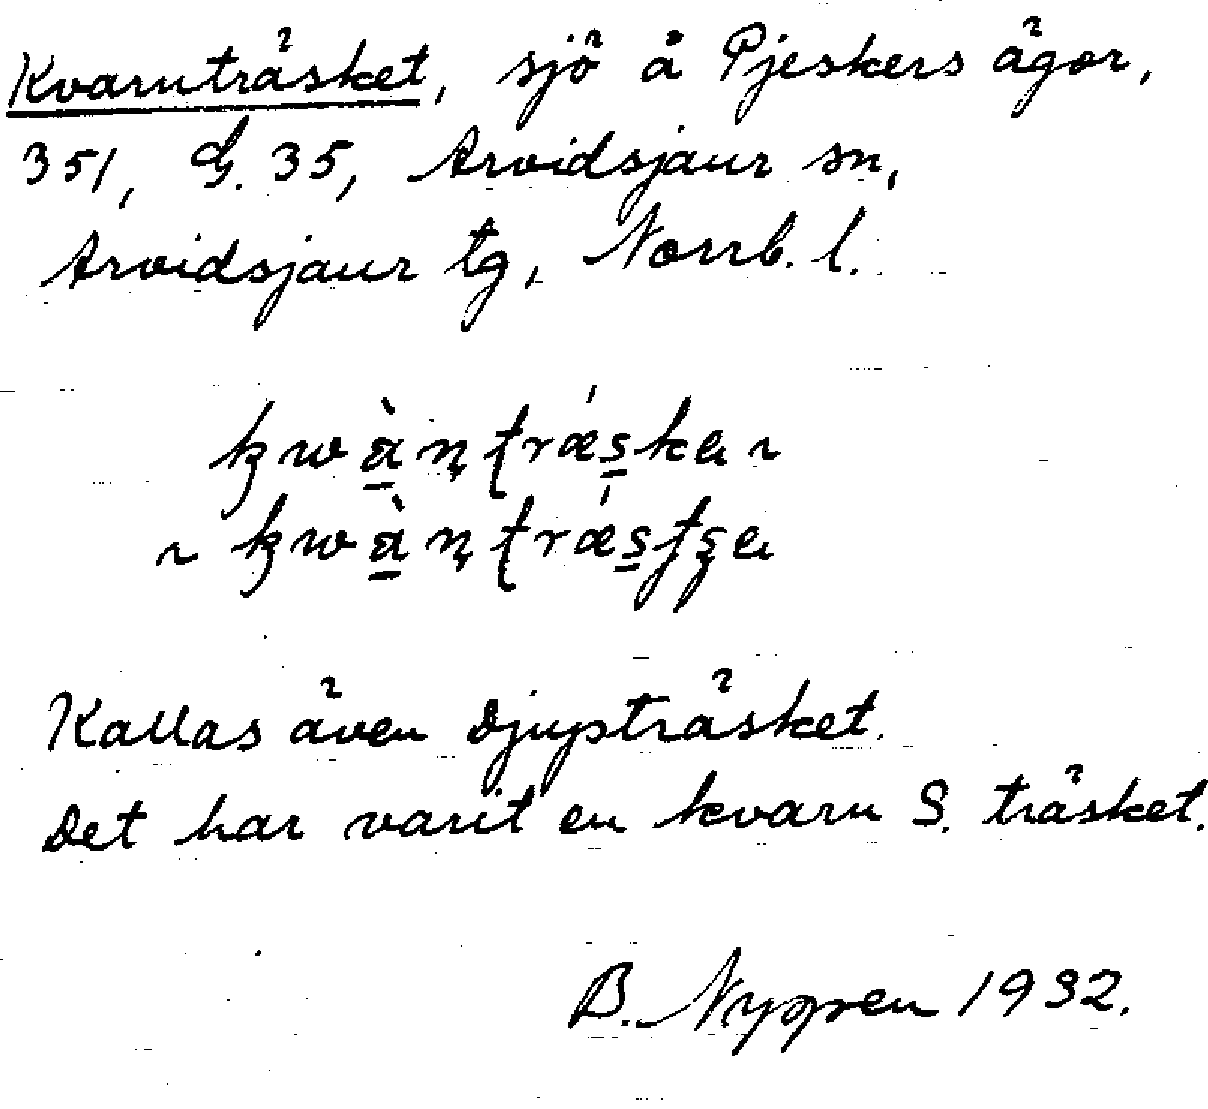 Kvarnträsket, sjö å Pjeskers ägor,
351, G. 35, Arvidsjaur sn,
Arvidsjaur tg, Norrb. l.
Kallas även Djupträsket.
Det har varit en kvarn S. träsket.
B. 1932.